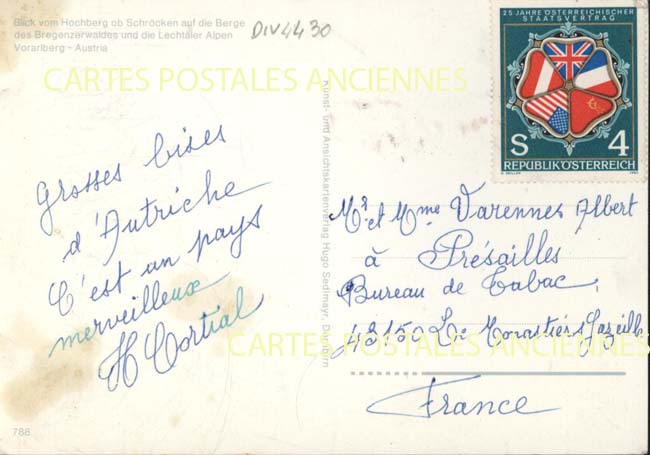 Blick vom Hochberg ob Schröcken auf die Berge
des Bregenzerwaldes und die Lechtaler Alpen
Vorarlberg - Austria
DIV4430
CARTES POSTALES ANCIENNES
25 JAHRE ÖSTERREICHISCHER
STAATSVERTRAG
S 4
REPUBLIK ÖSTERREICH
Kunst- und Ansichtskartenverlag Hugo Sedlmayr, Dornbirn
Grosses bises
d'Autriche
C'est un pays
merveilleux
H Cortial
Mr. et Mme Varennes Albert
à Présailles
Bureau de Tabac
43150 Le Monastier s/Gazeille
CARTES POSTALES ANCIENNES
France
788